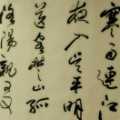 寒雨連江
夜入吴平明
送客楚山孤
洛陽親友